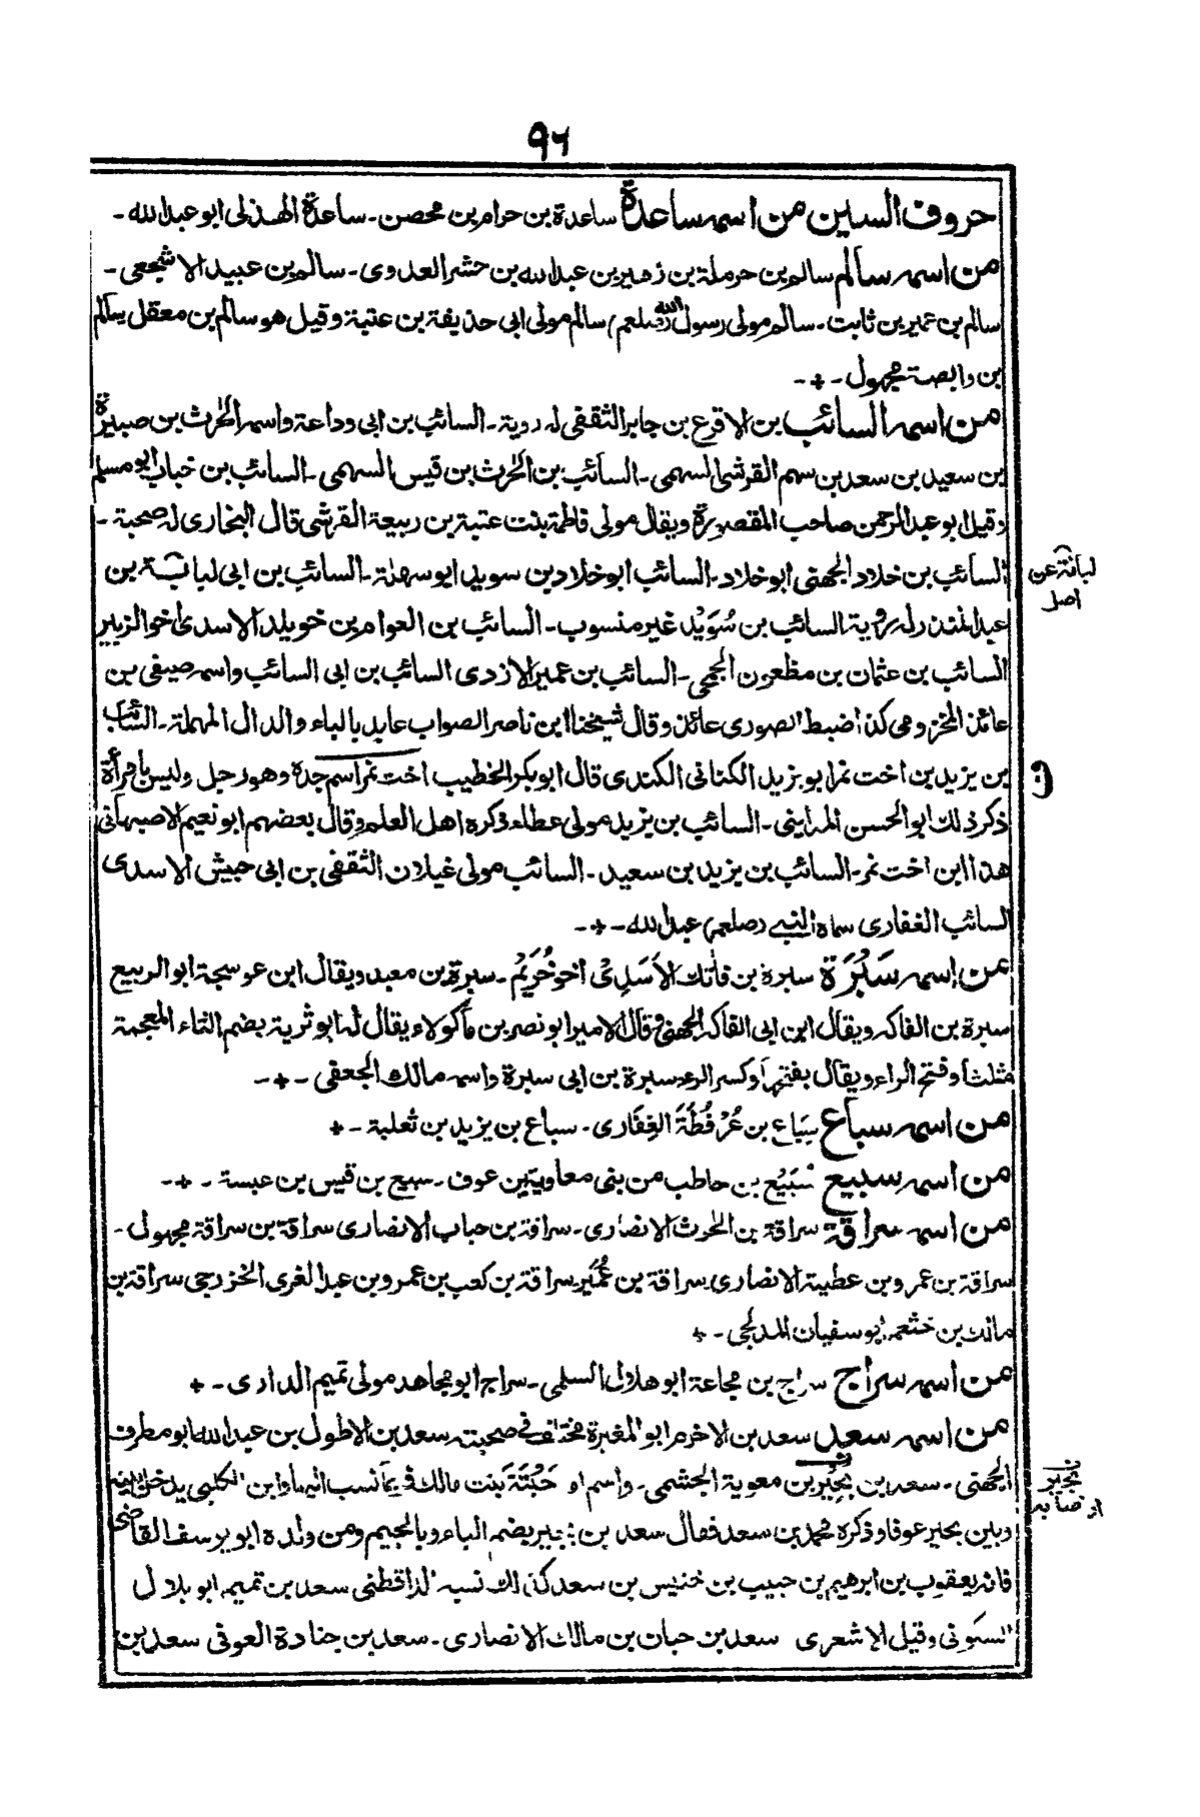 ٩٦
حروف السين من اسمه ساعدة ساعدة بن حرام بن محصن ـ ساعدة الهذلى ابو عبد الله ـ
من اسمه سالم سالم بن حرملة بن زهير بن عبد الله بن حشر العدوى ـ سالم بن عبيد الاشجعى ـ
سالم بن عمير بن ثابت ـ سالم مولى رسول الله (صلعم) سالم مولى ابى حذيفة بن عتبة وقيل هو سالم بن معقل سالم
بن وابصة مجهول ـ ٭ ـ
من اسمه السائب بن الاقرع بن جابر الثقفى له روية ـ السائب بن ابى وداعة واسمه الحٰرث بن صبيرة
بن سعيد بن سعد بن سهم القرشى السهمى ـ السائب بن الحٰرث بن قيس السهمى ـ السائب بن خباب ابو مسلم
وقيل ابو عبد الرحمن صاحب المقصورة ويقال مولى فاطمة بنت عتبة بن ربيعة القرشى قال البخارى له صحبة ـ
السائب بن خلاد الجهنى ابو خلاد ـ السائب ابو خلاد بن سويد ابو سهلة ـ السائب بن ابى لبابة بن
عبد المنذر له روية السائب بن سُوَيْد غير منسوب ـ السائب بن العوام بن خويلد الاسدى اخو الزبير
السائب بن عثمان بن مظعون الجمحى ـ السائب بن عمير الازدى السائب بن ابى السائب واسمه صيفى بن
عائذ المخزومى كذا ضبط الصورى عائذ وقال شيخنا ابن ناصر الصواب عابد بالباء والدال المهملة ـ السائب
بن يزيد بن اخت نمر ابو يزيد الكنانى الكندى قال ابو بكر الخطيب اخت نمر اسم جدة وهو رجل وليس بامرأة
ذكر ذلك ابو الحسن المداينى ـ السائب بن يزيد مولى عطاء ذكره اهل العلم وقال بعضهم ابو نعيم الاصبهانى
هذا ابن اخت نمر ـ السائب بن يزيد بن سعيد ـ السائب مولى غيلان الثقفى بن ابى حبيش الاسدى
السائب الغفارى سماه النبى (صلعم) عبد الله ـ ٭ ـ
من اسمه سَبُرَة سبرة بن فاتك الاَسَدِى اخو خُرَيْم ـ سبرة بن معبد ويقال ابن عوسجة ابو الربيع
سبرة بن الفاكه ويقال ابن ابى الفاكه الجهنى وقال الامير ابو نصر بن ماكولاء يقال له ابو ثرية بضم الثاء المعجمة
مثلثا وفتح الراء ويقال بفتحها وكسر الراء سبرة بن ابى سبرة واسمه مالك الجعفى ـ ٭ ـ
من اسمه سباع سِبَاع بن عُرْفُطَةَ الغِفَارى ـ سباع بن يزيد بن ثعلبة ـ ٭
من اسمه سبيع سُبَيْع بن حاطب من بنى معاوية بن عوف ـ سبيع بن قيس بن عبسة ـ ٭ ـ
من اسمه سراقة سراقة بن الحٰرث الانصارى ـ سراقة بن حباب الانصارى سراقة بن سراقة مجهول ـ
سراقة بن عمرو بن عطية الانصارى سراقة بن عُمَيْر سراقة بن كعب بن عمرو بن عبد الغرى الخزرجى سراقة بن
مالك بن خثعم ابو سفيان المدلجى ـ ٭
من اسمه سراج سراج بن مجاعة ابو هلال السلمى ـ سراج ابو مجاهد مولى تميم الدارى ـ ٭
من اسمه سعد سعد بن الاخرم ابو المغيرة مختلف فى صحبته سعد بن الاطول بن عبد الله ابو مطرف
الجهنى ـ سعد بن بجير بن معوية الجشمى ـ واسم امه حَبْتَةَ بنت مالك فيما نسب اليها وابن الكلبى يدخل بينه
وبين بجير عوفا وذكره محمد بن سعد فقال سعد بن بجير بضم الباء وبالجيم ومن ولده ابو يوسف القاضى
فانه يعقوب بن ابرهيم بن حبيب بن خنيس بن سعد كذلك نسبه الدارقطنى سعد بن تميم ابو بلال
السكونى وقيل الاشعرى سعد بن حبان بن مالك الانصارى ـ سعد بن جنادة العوفى سعد بن
لبانة عن
اصل
ف
بجير